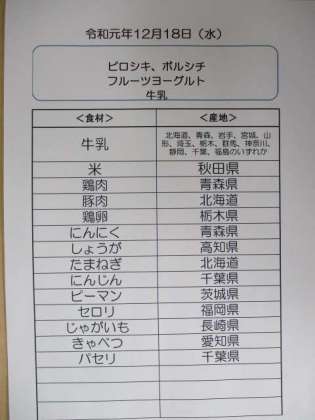 令和元年12月18日（水）
ピロシキ、ボルシチ
フルーツヨーグルト
牛乳
＜食材＞ ＜産地＞
牛乳 北海道、青森、岩手、宮城、山
形、埼玉、栃木、群馬、神奈川、
静岡、千葉、福島のいずれか
米 秋田県
鶏肉 青森県
豚肉 北海道
鶏卵 栃木県
にんにく 青森県
しょうが 高知県
たまねぎ 北海道
にんじん 千葉県
ピーマン 茨城県
セロリ 福岡県
じゃがいも 長崎県
きゃべつ 愛知県
パセリ 千葉県